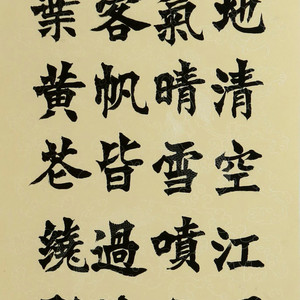 地清空江
氣晴雪噴
客帆皆過
葉黄花繞